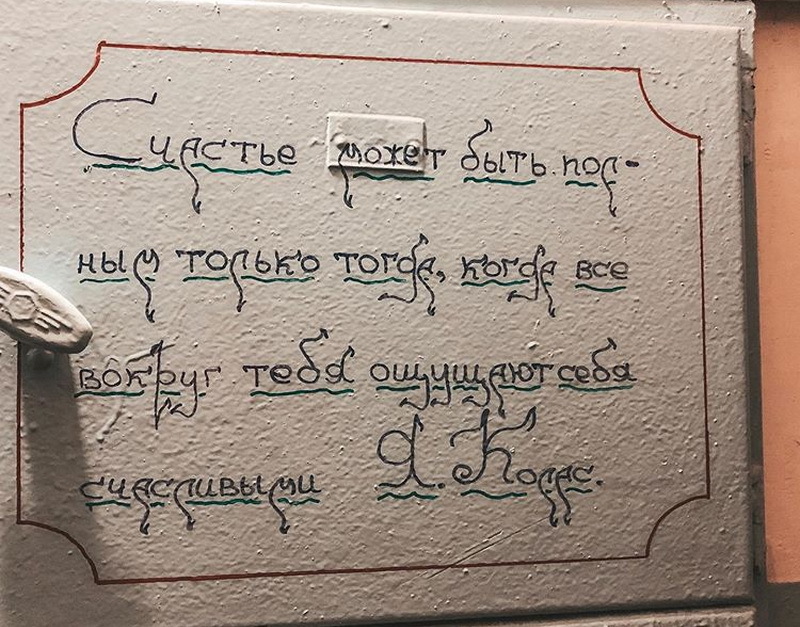 Счастье может быть пол-
ным только тогда, когда все
вокруг тебя ощущают себя
счасливыми Я. Колас.